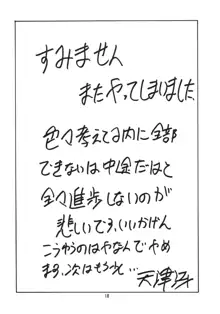 すみません
またやってしまいました
色々考えてる内に全部
できないは中途だはで
全々進歩しないのが
悲しいです、いいかげん
こうゆうのはやなんでやめ
ます、次はもっと…
18